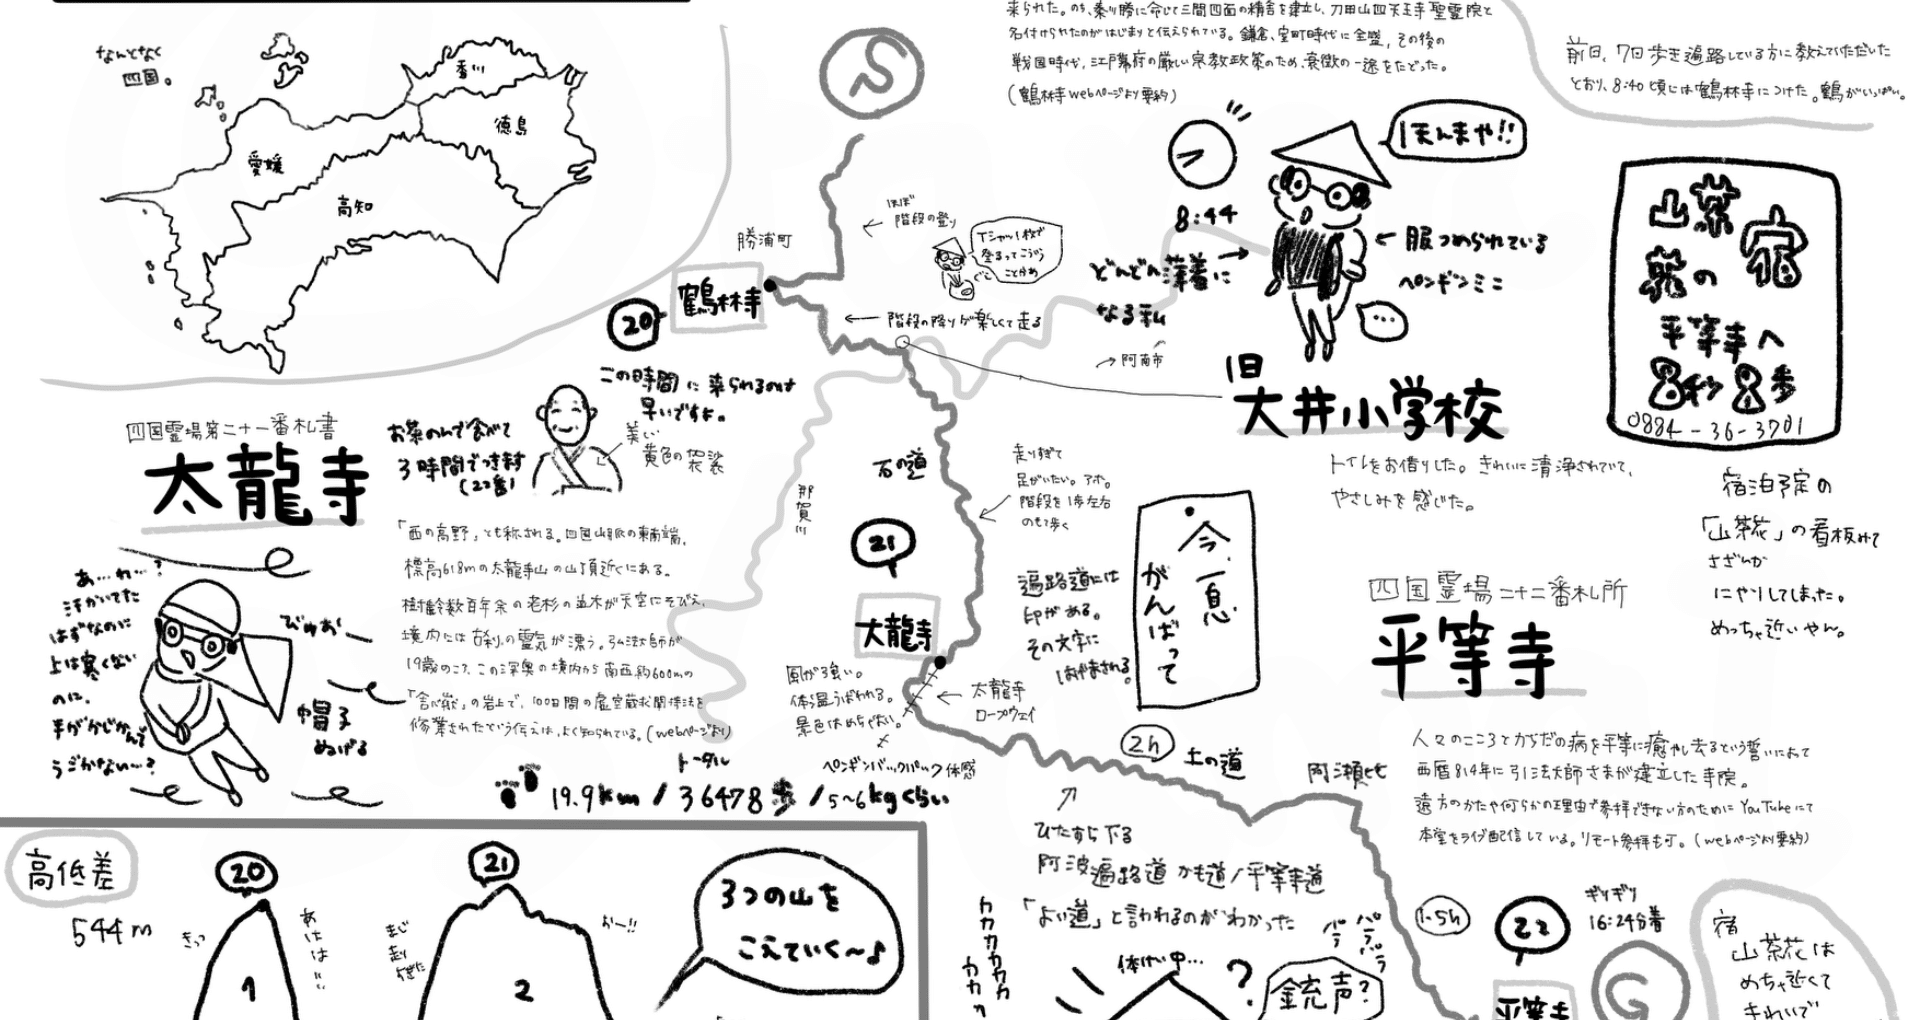 来られた。のち、秦川勝に命じて三間四面の精舎を建立し、刀田山四天王寺聖霊院と
名付けられたのがはじまりと伝えられている。鎌倉、室町時代に全盛，その後の
戦国時代，江戸幕府の厳しい宗教政策のため、衰微の一途をたどった。
(鶴林寺webページより要約)
前日、7日歩き遍路している方に教えていただいた
とおり、8:40頃には鶴林寺につけた。鶴がいっぱい。
なんとなく
四国。
香川
徳島
愛媛
高知
S
ほぼ
階段の登り
Tシャツ1枚で
登るってこういう
ことかぁ
勝浦町
20
鶴林寺
階段の降りが楽しくて走る
8:44
どんどん薄着に
なる私
ほんまや!!
服つめられている
ペンギンミニ
...
阿南市
旧
大井小学校
トイレをお借りした。きれいに清浄されていて、
やさしみを感じた。
山茶
花の
宿
平等寺へ
8秒8歩
0884-36-3701
宿泊予定の
「山茶花」の看板みて
さざんか
にやりしてしまった。
めっちゃ近いやん。
四国霊場第二十一番札書
太龍寺
この時間に来られるのは
早いですよ。
お茶のんで食べて
3時間でつきます
(22番)
美しい
黄色の袈裟
「西の高野」とも称される。四国山脈の東南端，
標高618mの太龍寺山の山頂近くにある。
樹齢数百年余の老杉の並木が天空にそびえ，
境内には古刹の霊気が漂う。弘法大師が
19歳のころ、この深奥の境内から南西約600mの
「舎心嶽」の岩上で，100日間の虚空蔵求聞持法を
修業されたという伝えは、よく知られている。(webページより)
あ...れ...?
汗かいてた
はずなのに
上は寒くない
のに、
手がかじかんで
うごかない〜?
びゅおー
帽子
ぬげる
那賀川
石の道
21
太龍寺
走りすぎて
足がいたい。アホ。
階段を1歩左右
のせて歩く
遍路道には
印がある。
その文字に
はげまされる。
今、一息
がんばって
風が強い。
体温うばわれる。
景色はめちゃよい。
太龍寺
ロープウェイ
ペンギンバックパック体感
トータル
19.9km / 36478歩 / 5〜6kgくらい
2h
土の道
阿瀬比
四国霊場二十二番札所
平等寺
人々のこころとからだの病を平等に癒やし去るという誓いによって
西暦814年に弘法大師さまが建立した寺院。
遠方のかたや何らかの理由で参拝できない方のためにYouTubeにて
本堂をライブ配信している。リモート参拝も可。(webページより要約)
ひたすら下る
阿波遍路道 かも道/平等寺道
「よい道」と言われるのがわかった
カカカカカ
カカッ
休けい中...
?
銃声?
パラ
パラパラ
1.5h
22
ギリギリ
16:24分着
平等寺
G
宿
山茶花は
めちゃ近くて
きれいで
高低差
544m
きっつ
20
1
あははは...
まじ
走り
すぎた
21
2
おー!!
3つの山を
こえていく〜♪